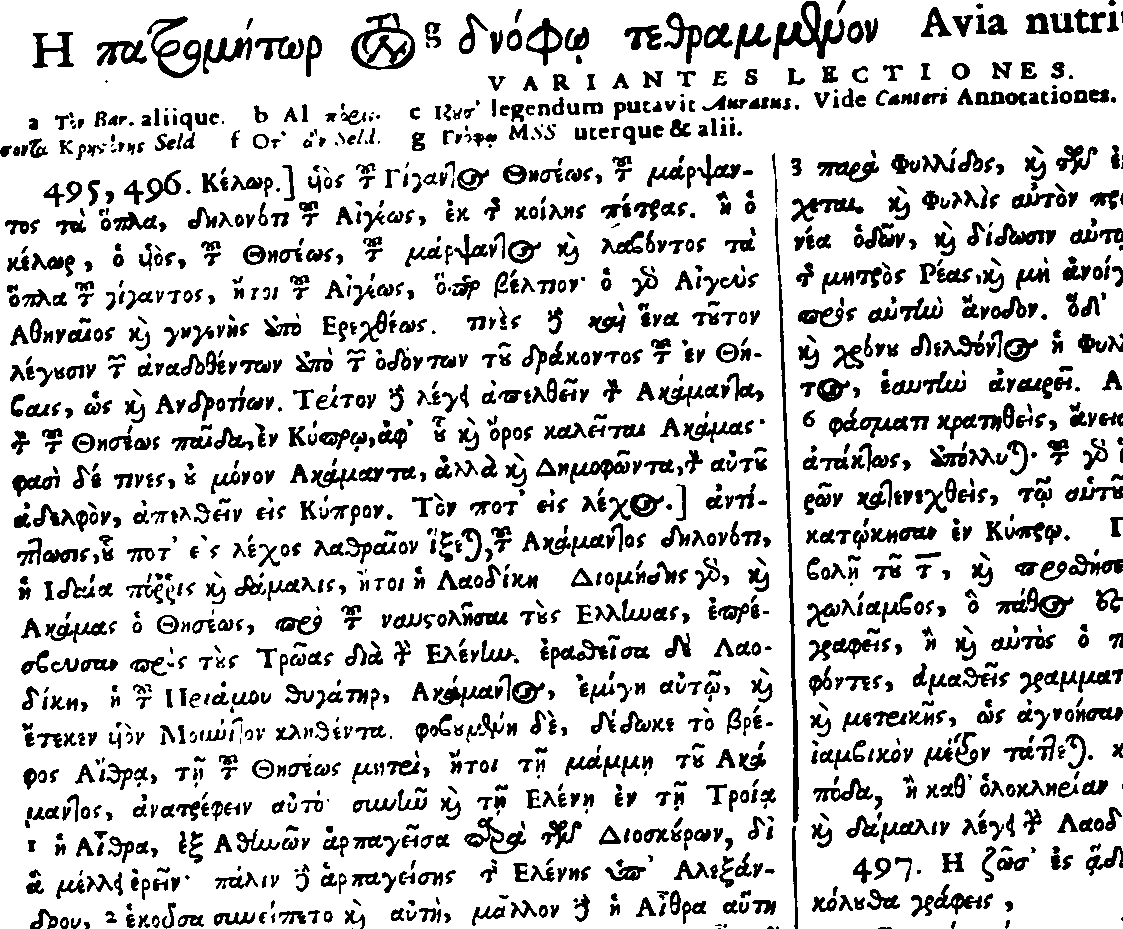 Η παζρομήτωρ g δνόφῳ τεθραμμθύον Avia nutri
VARIANTES LECTIONES.
a Τὸν Bar. aliique. b Al c legendum putavit Auratus. Vide Canteri Annotationes.
Κρησίης Seld f Seld. g Γνόφῳ MSS uterque & alii.
495, 496. Κέλωρ.] ὑὸς τ Γίγαντος Θησέως, τ μάρψαν-
τος τὰ ὅπλα, δηλονότι τ Αἰγέως, ἐκ τ κοίλης πέτρας. ἢ ὁ
κέλωρ, ὁ ὑὸς, τ Θησέως, τ μάρψαντος κὶ λαβόντος τὰ
ὅπλα τ γίγαντος, ἤτοι τ Αἰγέως, ὅπερ βέλτιον· ὁ γὸ Αἰγεὺς
Αθηναῖος κὶ γηγενὴς ἀπὸ Ερεχθέως. τινὲς ἢ καὶ ἕνα τοῦτον
λέγουσιν τ ἀναδοθέντων ἀπὸ τ ὀδόντων τοῦ δράκοντος τ ἐν Θή-
βαις, ὡς κὶ Ανδροτίων. Τρίτον ἢ λέγει ἀπελθεῖν τ Ακάμαντα,
τ τ Θησέως παῖδα, ἐν Κύπρῳ, ἀφ' οὗ κὶ ὄρος καλεῖται Ακάμας·
φασὶ δέ τινες, οὐ μόνον Ακάμαντα, ἀλλὰ κὶ Δημοφῶντα, τ αὐτοῦ
ἀδελφὸν, ἀπελθεῖν εἰς Κύπρον. Τὸν ποτ' εἰς λέχος.] ἀντί-
πτωσις, οὗ ποτ' εἰς λέχος λαθραῖον ἵξεται, τ Ακάμαντος δηλονότι,
ἡ Ιδαία πόρτις κὶ δάμαλις, ἤτοι ἡ Λαοδίκη Διομήδης γὸ, κὶ
Ακάμας ὁ Θησέως, πρὸ τ ναυστολῆσαι τοὺς Ελληνας, ἐπρέ-
σβευσαν πρὸς τοὺς Τρῶας διὰ τ Ελένην. ἐραθεῖσα δὲ Λαο-
δίκη, ἡ τ Πριάμου θυγάτηρ, Ακάμαντος, ἐμίγη αὐτῷ, κὶ
ἔτεκεν ὑὸν Μούνιτον κληθέντα. φοβουμένη δὲ, δέδωκε τὸ βρέ-
φος Αἴθρᾳ, τῇ τ Θησέως μητρὶ, ἤτοι τῇ μάμμῃ τοῦ Ακά
μαντος, ἀνατρέφειν αὐτό· συνῆν κὶ τῇ Ελένῃ ἐν τῇ Τροίᾳ
1 ἡ Αἴθρα, ἐξ Αθηνῶν ἁρπαγεῖσα παρὰ τῶν Διοσκούρων, δι
ἃ μέλλει ἐρεῖν· πάλιν ἢ ἁρπαγείσης τ Ελένης ὑπ' Αλεξάν-
δρου, 2 ἑκοῦσα συνείπετο κὶ αὐτὴ, μᾶλλον ἢ ἡ Αἴθρα αὕτη
3 παρὰ Φυλλίδος, κὶ τῶν
χεται κὶ Φυλλὶς αὐτὸν
νέα ὁδῶν, κὶ δίδωσιν αὐτῷ
τ μητρὸς Ρέας, κὶ μὴ ἀνοίγ
πρὸς αὐτὴν ἄνοδον. ὅδι'
κὶ χρόνου διελθόντος ἡ Φυλλ
τος, ἑαυτὴν ἀναιρεῖ. Α
6 φάσματι κρατηθεὶς, ἄνει
ἀτάκτως, ἀπόλλυται· τ γὸ
ρῶν κατενεχθεὶς, τῷ αὑτοῦ
κατῴκησαν ἐν Κύπρῳ. Γ
βολῇ τοῦ τ, κὶ προσθήσε
χωλίαμβος, ὃ πάθος
γραφεῖς, ἢ κὶ αὐτὸς ὁ π
φόντες, ἀμαθεῖς γραμματ
κὶ μετρικῆς, ὡς ἀγνοήσαν
ἰαμβικὸν μέτρον τάττεται. κ
πόδα, ἢ καθ' ὁλοκληρίαν
κὶ δάμαλιν λέγει τ Λαοδ
497. Η ζῶσ' ἐς ᾅδ
κόλουθα γράφεις,